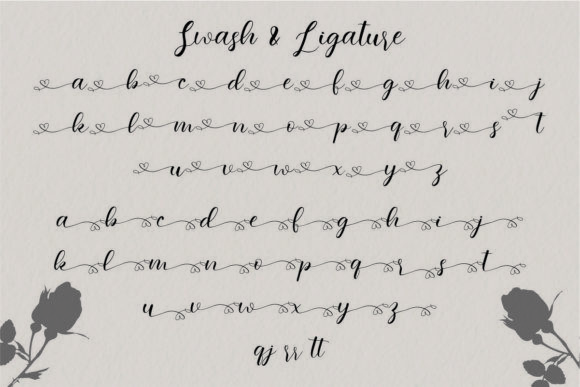 Swash & Ligature
a b c d e f g h i j
k l m n o p q r s t
u v w x y z
a b c d e f g h i j
k l m n o p q r s t
u v w x y z
qj rr tt